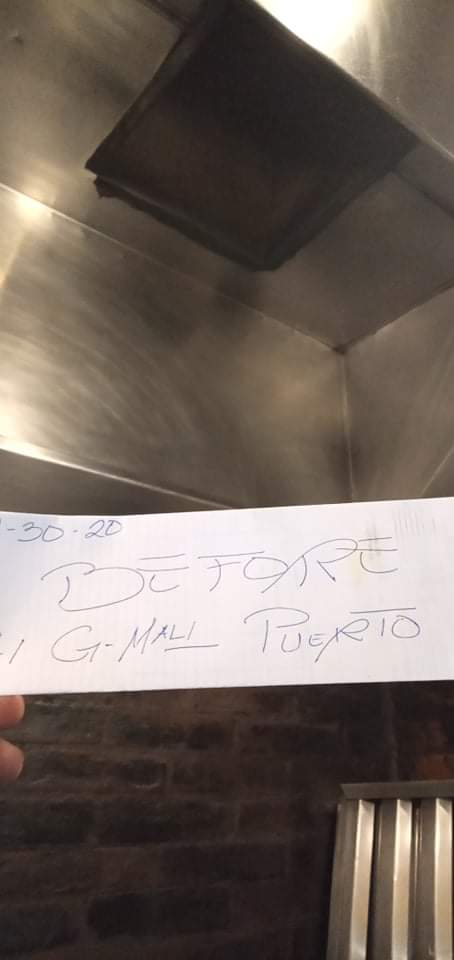 -30-20
BEFORE
G-MALI PUERTO